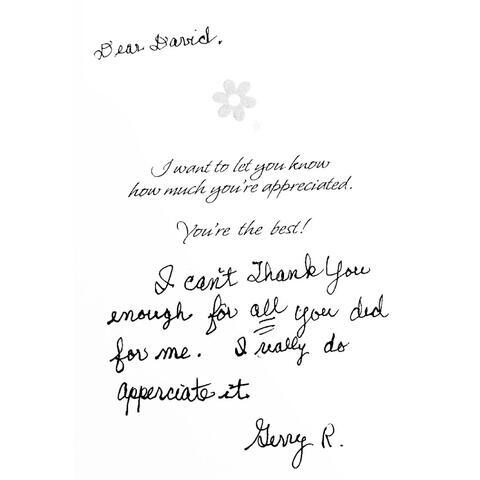 Dear David,
I want to let you know
how much you're appreciated.
You're the best!
I can't Thank You
enough for all you did
for me. I really do
apperciate it
Gerry R.